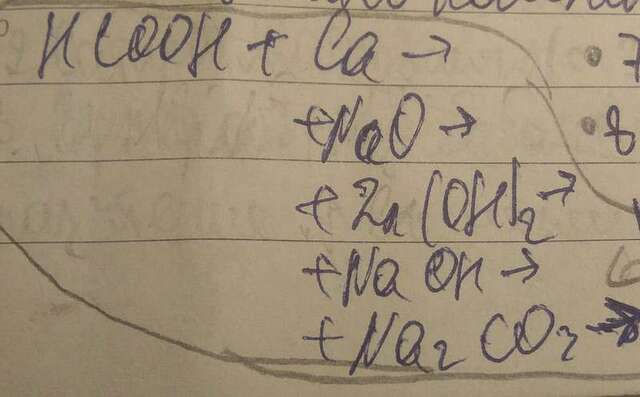 HCOOH + Ca →
• 7
+ NaO →
• 8
+ Zn(OH)₂ →
+ NaOH →
+ Na₂CO₃ →